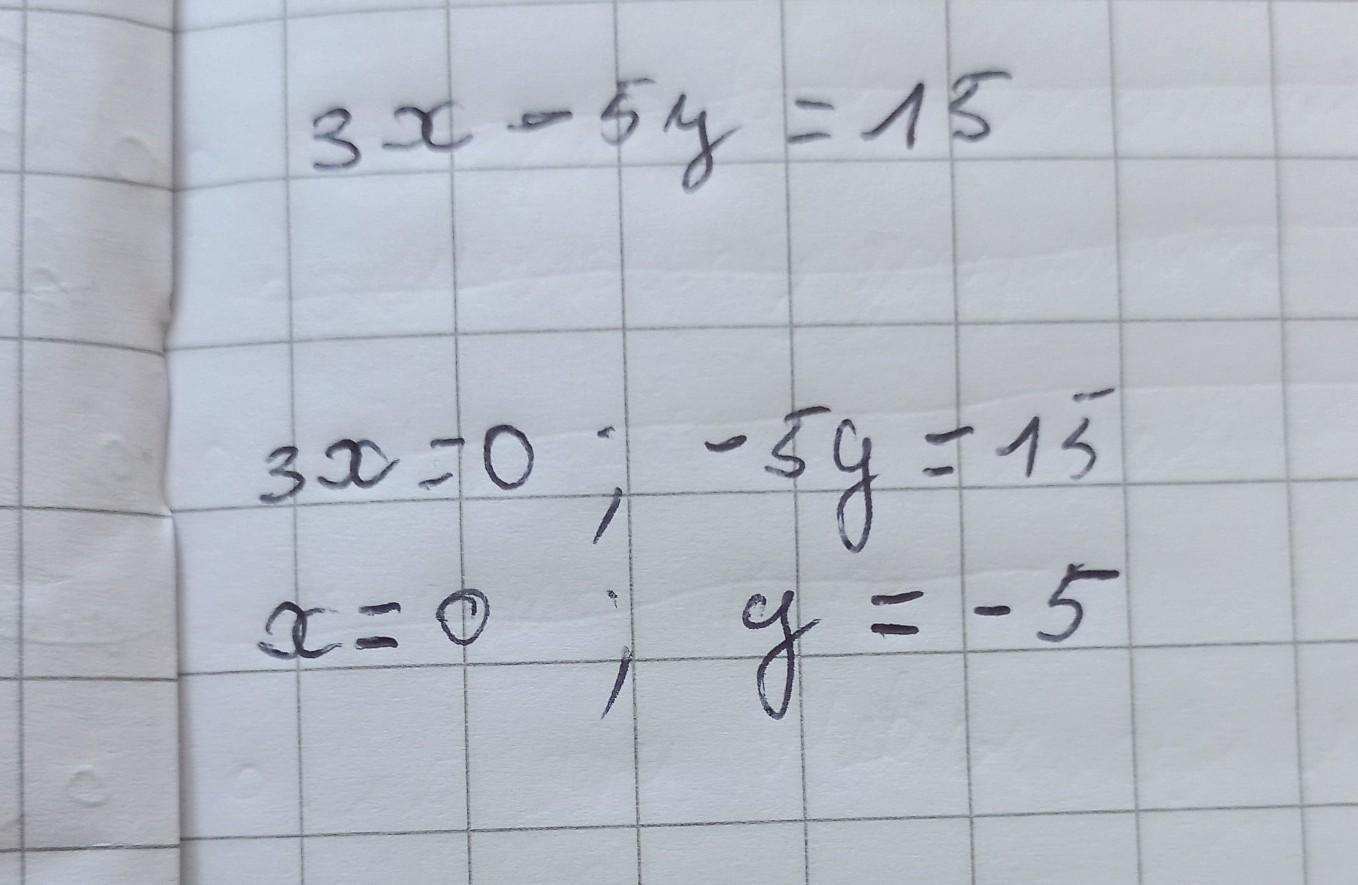 3x - 5y = 15
3x = 0 ; -5y = 15
x = 0 ; y = -5